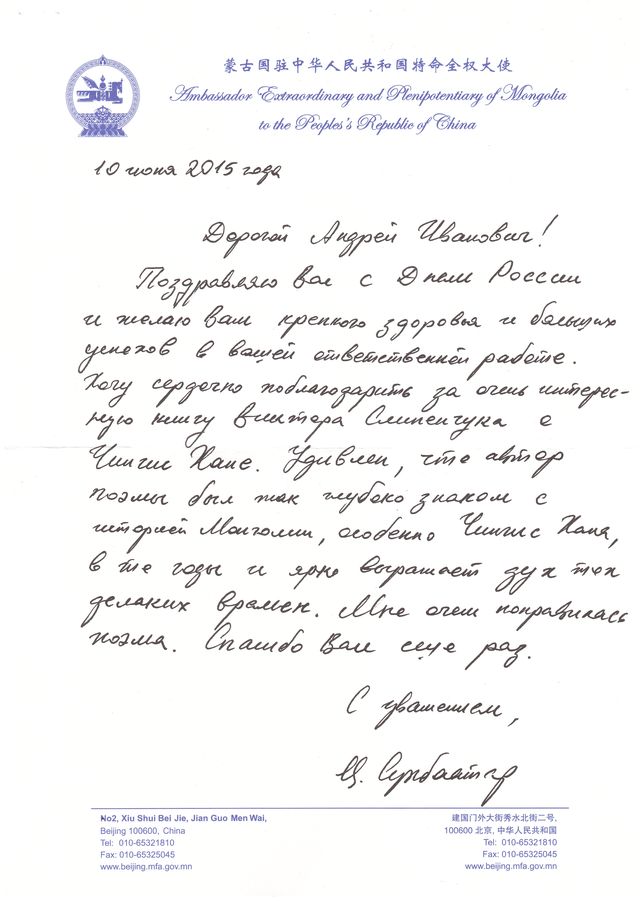 蒙古国驻中华人民共和国特命全权大使
Ambassador Extraordinary and Plenipotentiary of Mongolia
to the Peoples's Republic of China
10 июня 2015 года
Дорогой Андрей Иванович!
Поздравляю Вас с Днем России
и желаю Вам крепкого здоровья и больших
успехов в вашей ответственной работе.
Хочу сердечно поблагодарить за очень интерес-
ную книгу Виктора Слипенчука о
Чингис Хане. Удивлен, что автор
поэмы был так глубоко знаком с
историей Монголии, особенно Чингис Хана,
в те годы и ярко выражает дух тех
делаких времен. Мне очен понравилась
поэма. Спасибо Вам еще раз.
С уважением,
Ц. Сухбаатар
No2, Xiu Shui Bei Jie, Jian Guo Men Wai,
Beijing 100600, China
Tel: 010-65321810
Fax: 010-65325045
www.beijing.mfa.gov.mn
建国门外大街秀水北街二号,
100600 北京, 中华人民共和国
Tel: 010-65321810
Fax: 010-65325045
www.beijing.mfa.gov.mn